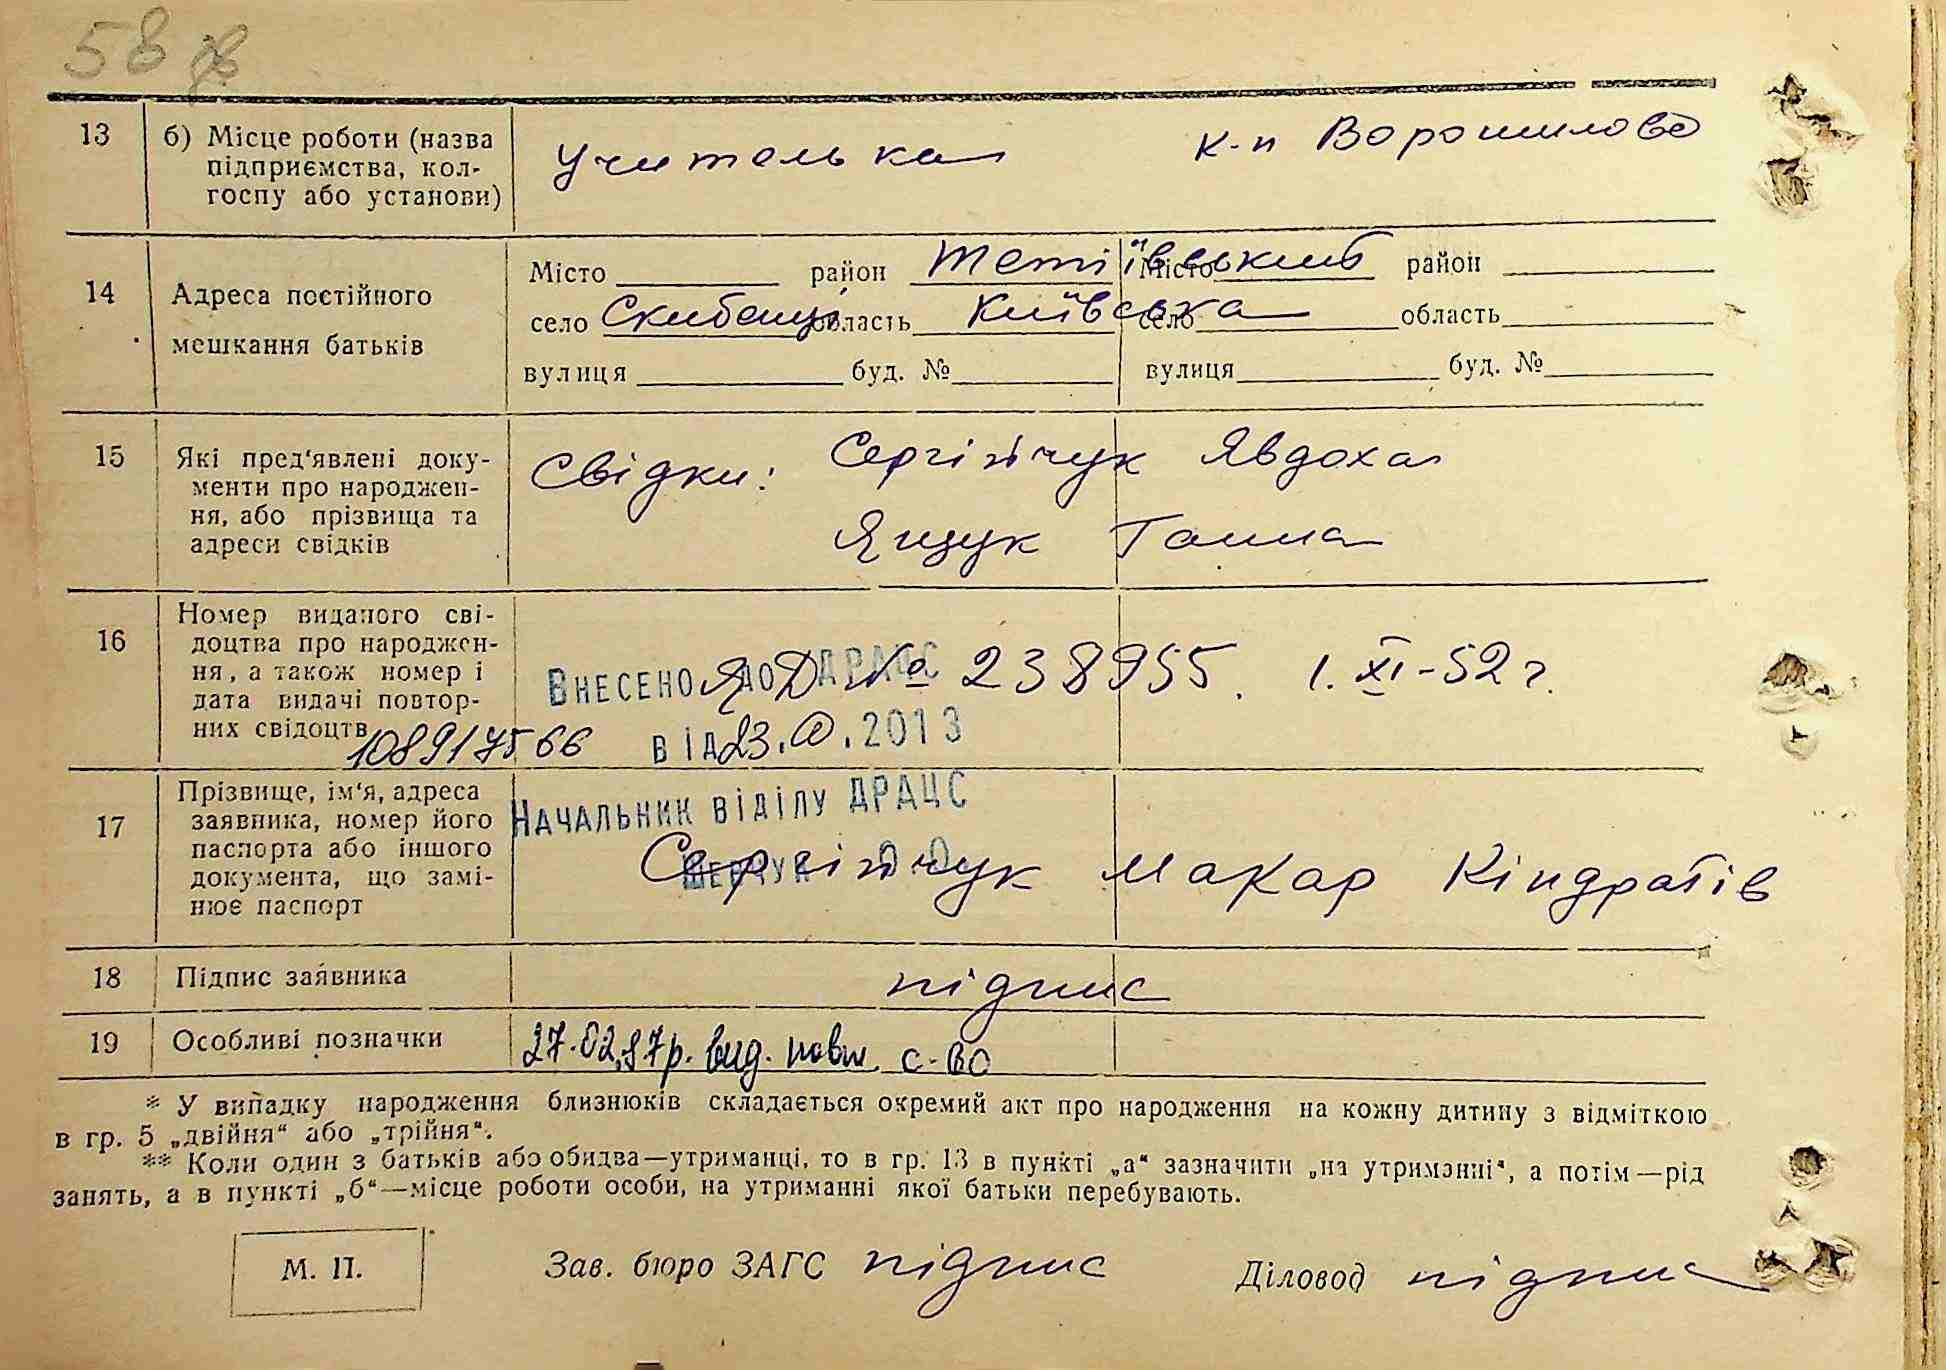 58 зв
13 б) Місце роботи (назва підприємства, кол-
госпу або установи) Учителька к-п Ворошилова
14 Адреса постійного мешкання батьків
Місто район Тетіївський Місто район
село Скибенці область Київська село область
вулиця буд. № вулиця буд. №
15 Які пред'явлені доку-
менти про народжен-
ня, або прізвища та
адреси свідків
Свідки: Сергійчук Явдоха
Ящук Ганна
16 Номер виданого сві-
доцтва про народжен-
ня, а також номер і
дата видачі повтор-
них свідоцтв
Внесено до ДРАЦС
ЯД № 238955. 1.XI-52 г.
108917566 від 23. .2013
17 Прізвище, ім'я, адреса
заявника, номер його
паспорта або іншого
документа, що замі-
нює паспорт
Начальник відділу ДРАЦС
Шевчук
Сергійчук Макар Кіндратів
18 Підпис заявника підпис
19 Особливі позначки 27.02.87р. вид. повт. с-во
* У випадку народження близнюків складається окремий акт про народження на кожну дитину з відміткою
в гр. 5 „двійня“ або „трійня“.
** Коли один з батьків або обидва—утриманці, то в гр. 13 в пункті „а“ зазначити „на утриманні“, а потім—рід
занять, а в пункті „б“—місце роботи особи, на утриманні якої батьки перебувають.
М. П. Зав. бюро ЗАГС підпис Діловод підпис